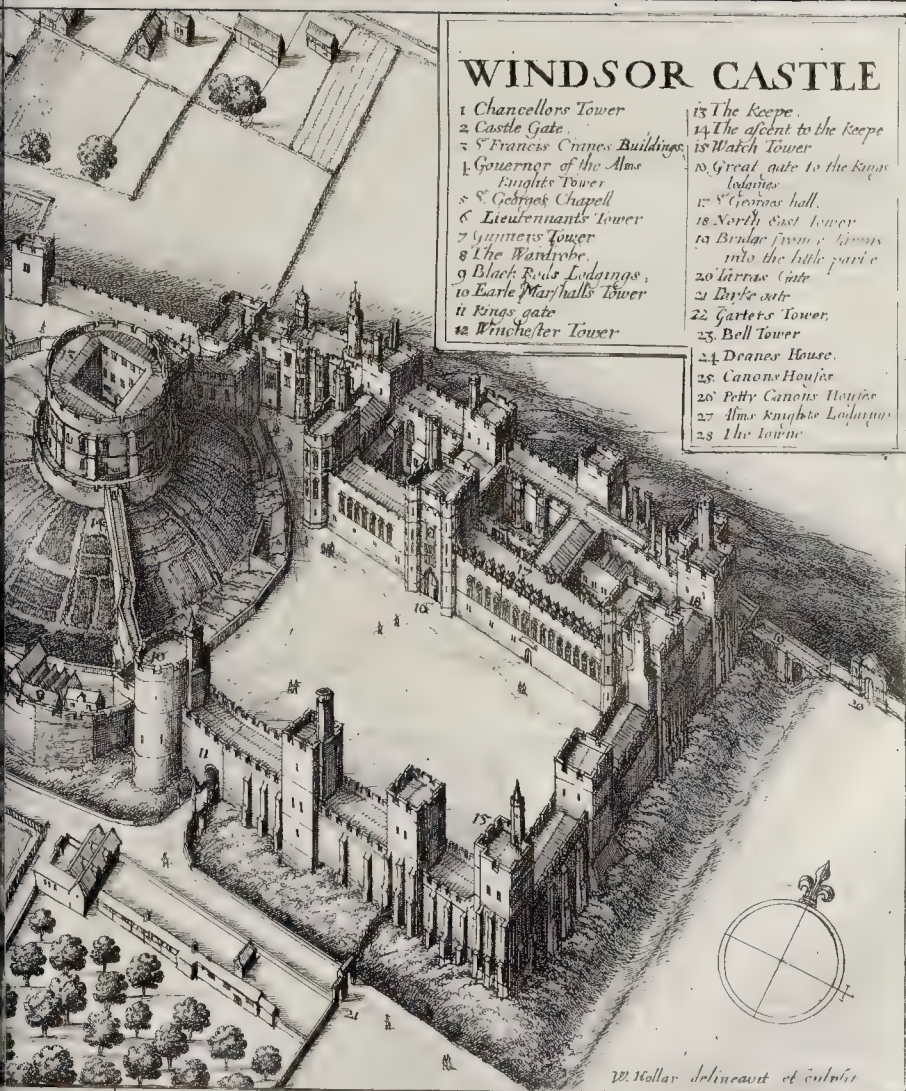 WINDSOR CASTLE
1 Chancellors Tower
2 Castle Gate.
3 Sr Francis Cranes Buildings,
4 Gouernor of the Alms
Knights Tower
5 St. Georges Chapell
6 Lieutennants Tower
7 Gunners Tower
8 The Wardrobe.
9 Black Rods Lodgings,
10 Earle Marshalls Tower
11 Kings gate
12 Winchester Tower
13 The Keepe.
14 The ascent to the Keepe
15 Watch Tower
16 Great gate to the Kings
lodgings
17 St Georges hall.
18 North East Tower
19 Bridge from
into the little
20 Tarras Gate
21 Parke gate
22 Garters Tower,
23. Bell Tower
24 Deanes House.
25. Canons Houses
26 Petty Canons Houses
27 Alms Knights Lodgings
28 The Towne
14
17
18
16
19
20
9
11
15
21
W. Hollar delineavit et sculpsit